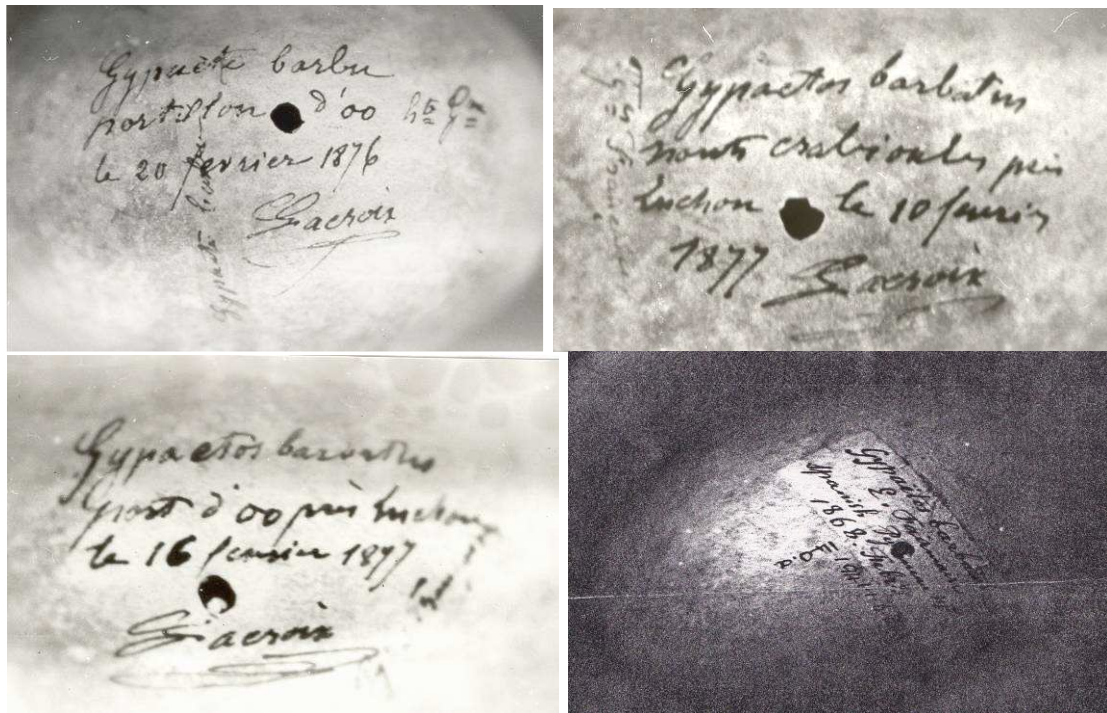 Gypaète barbu
portillon d'oo hte Gne
le 20 fevrier 1876
Lacroix
Gypaète
Gypaetos barbatus
monts crabioules près
Luchon le 10 fevrier
1877
Lacroix
Gypaetos barbatus
port d'oo près Luchon
le 16 fevrier 1877
Lacroix
Gypaetos barbatus
Spanish
1868